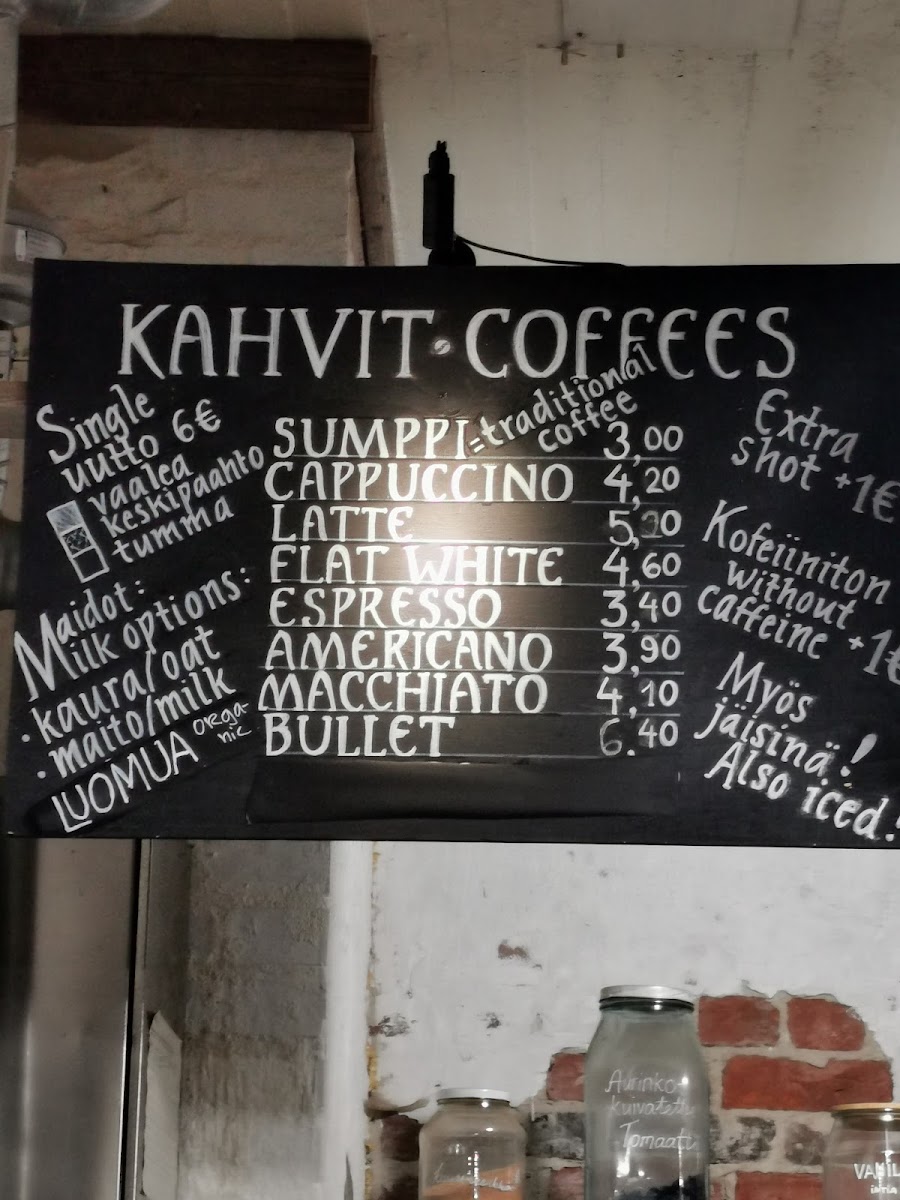 KAHVIT · COFFEES
Single
uutto 6€
vaalea
keskipaahto
tumma
Maidot:
Milk options:
· kaura/oat
· maito/milk
LUOMUA orga-
nic
SUMPPI =traditional
coffee 3,00
CAPPUCCINO 4,20
LATTE
FLAT WHITE 4,60
ESPRESSO 3,40
AMERICANO 3,90
MACCHIATO 4,10
BULLET 6.40
Extra
shot +1€
Kofeiiniton
without
caffeine +1€
Myös
jäisinä!
Also iced!
Aurinko-
kuivatettu
Tomaatti